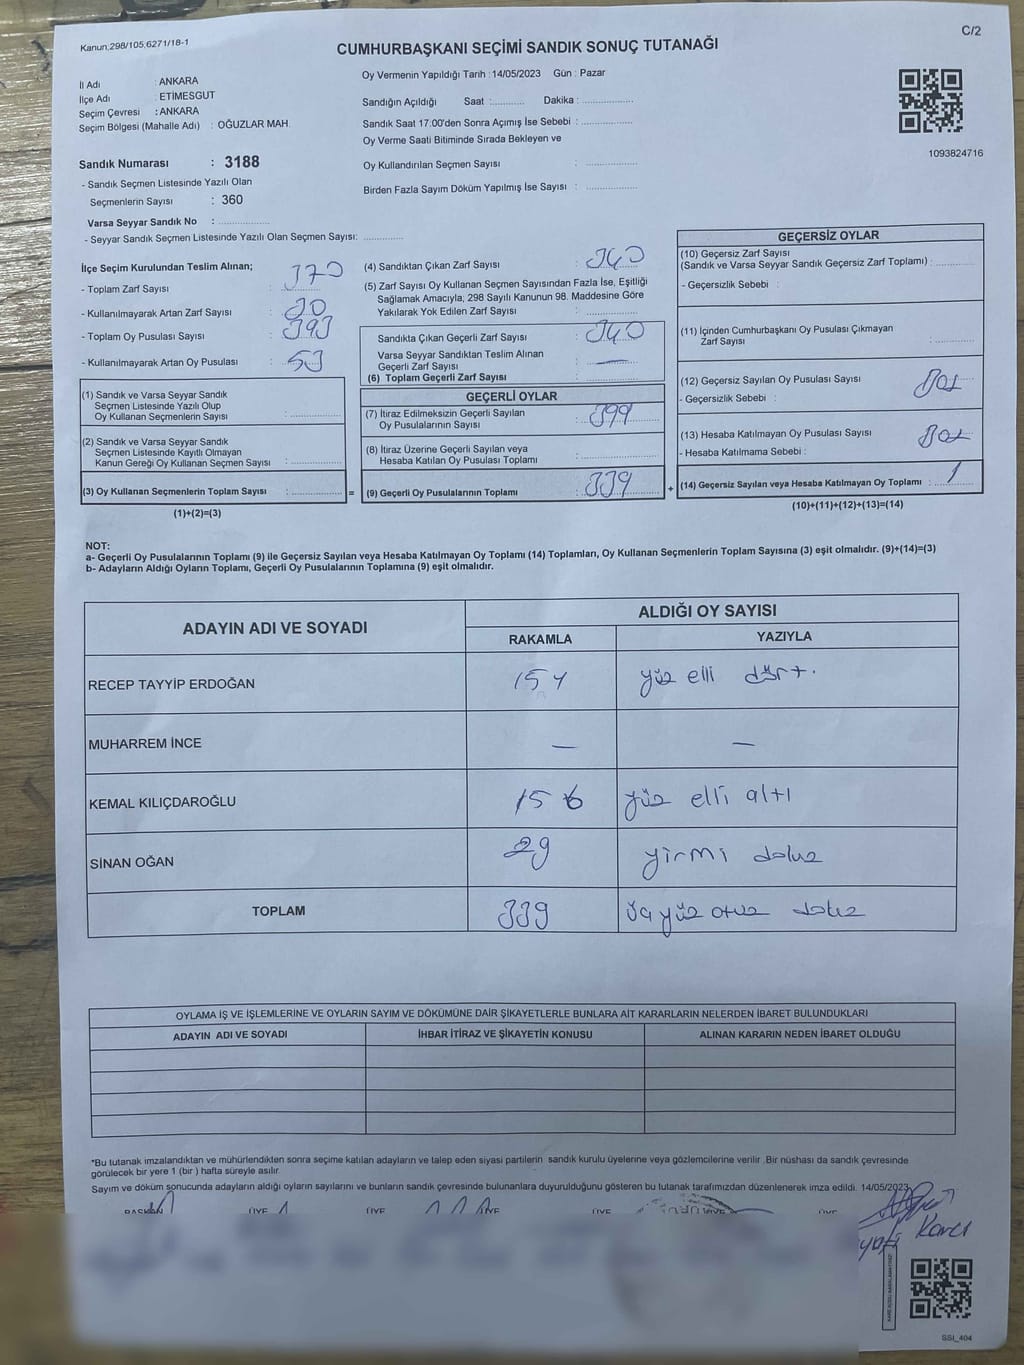 Kanun,298/105,6271/18-1
C/2
CUMHURBAŞKANI SEÇİMİ SANDIK SONUÇ TUTANAĞI
İl Adı : ANKARA
İlçe Adı : ETİMESGUT
Seçim Çevresi : ANKARA
Seçim Bölgesi (Mahalle Adı) : OĞUZLAR MAH.
Sandık Numarası : 3188
- Sandık Seçmen Listesinde Yazılı Olan
Seçmenlerin Sayısı : 360
Varsa Seyyar Sandık No : ..................
- Seyyar Sandık Seçmen Listesinde Yazılı Olan Seçmen Sayısı: .............
Oy Vermenin Yapıldığı Tarih :14/05/2023 Gün : Pazar
Sandığın Açıldığı Saat :........... Dakika : .................
Sandık Saat 17:00'den Sonra Açımış İse Sebebi : .................
Oy Verme Saati Bitiminde Sırada Bekleyen ve
Oy Kullandırılan Seçmen Sayısı : .................
Birden Fazla Sayım Döküm Yapılmış İse Sayısı : .................
1093824716
İlçe Seçim Kurulundan Teslim Alınan;
- Toplam Zarf Sayısı : 370
- Kullanılmayarak Artan Zarf Sayısı : 30
- Toplam Oy Pusulası Sayısı : 393
- Kullanılmayarak Artan Oy Pusulası : 53
(1) Sandık ve Varsa Seyyar Sandık
Seçmen Listesinde Yazılı Olup
Oy Kullanan Seçmenlerin Sayısı : .................
(2) Sandık ve Varsa Seyyar Sandık
Seçmen Listesinde Kayıtlı Olmayan
Kanun Gereği Oy Kullanan Seçmen Sayısı : .................
(3) Oy Kullanan Seçmenlerin Toplam Sayısı : ................. =
(1)+(2)=(3)
(4) Sandıktan Çıkan Zarf Sayısı : 340
(5) Zarf Sayısı Oy Kullanan Seçmen Sayısından Fazla İse, Eşitliği
Sağlamak Amacıyla, 298 Sayılı Kanunun 98. Maddesine Göre
Yakılarak Yok Edilen Zarf Sayısı : .................
Sandıkta Çıkan Geçerli Zarf Sayısı : 340
Varsa Seyyar Sandıktan Teslim Alınan
Geçerli Zarf Sayısı : —
(6) Toplam Geçerli Zarf Sayısı : .................
GEÇERLİ OYLAR
(7) İtiraz Edilmeksizin Geçerli Sayılan
Oy Pusulalarının Sayısı : 399
(8) İtiraz Üzerine Geçerli Sayılan veya
Hesaba Katılan Oy Pusulası Toplamı : .................
(9) Geçerli Oy Pusulalarının Toplamı : 339 +
GEÇERSİZ OYLAR
(10) Geçersiz Zarf Sayısı
(Sandık ve Varsa Seyyar Sandık Geçersiz Zarf Toplamı) : ............
- Geçersizlik Sebebi :
(11) İçinden Cumhurbaşkanı Oy Pusulası Çıkmayan
Zarf Sayısı : ............
(12) Geçersiz Sayılan Oy Pusulası Sayısı :
- Geçersizlik Sebebi :
(13) Hesaba Katılmayan Oy Pusulası Sayısı :
- Hesaba Katılmama Sebebi :
(14) Geçersiz Sayılan veya Hesaba Katılmayan Oy Toplamı : 1
(10)+(11)+(12)+(13)=(14)
NOT:
a- Geçerli Oy Pusulalarının Toplamı (9) ile Geçersiz Sayılan veya Hesaba Katılmayan Oy Toplamı (14) Toplamları, Oy Kullanan Seçmenlerin Toplam Sayısına (3) eşit olmalıdır. (9)+(14)=(3)
b- Adayların Aldığı Oyların Toplamı, Geçerli Oy Pusulalarının Toplamına (9) eşit olmalıdır.
ADAYIN ADI VE SOYADI
ALDIĞI OY SAYISI
RAKAMLA YAZIYLA
RECEP TAYYİP ERDOĞAN 154 yüz elli dört.
MUHARREM İNCE — —
KEMAL KILIÇDAROĞLU 156 yüz elli altı
SİNAN OĞAN 29 yirmi dokuz
TOPLAM 339 üç yüz otuz dokuz
OYLAMA İŞ VE İŞLEMLERİNE VE OYLARIN SAYIM VE DÖKÜMÜNE DAİR ŞİKAYETLERLE BUNLARA AİT KARARLARIN NELERDEN İBARET BULUNDUKLARI
ADAYIN ADI VE SOYADI İHBAR İTİRAZ VE ŞİKAYETİN KONUSU ALINAN KARARIN NEDEN İBARET OLDUĞU
*Bu tutanak imzalandıktan ve mühürlendikten sonra seçime katılan adayların ve talep eden siyasi partilerin sandık kurulu üyelerine veya gözlemcilerine verilir .Bir nüshası da sandık çevresinde
görülecek bir yere 1 (bir ) hafta süreyle asılır.
Sayım ve döküm sonucunda adayların aldığı oyların sayılarını ve bunların sandık çevresinde bulunanlara duyurulduğunu gösteren bu tutanak tarafımızdan düzenlenerek imza edildi. 14/05/2023
BAŞKAN ÜYE ÜYE ÜYE ÜYE ÜYE ÜYE
SSI_404